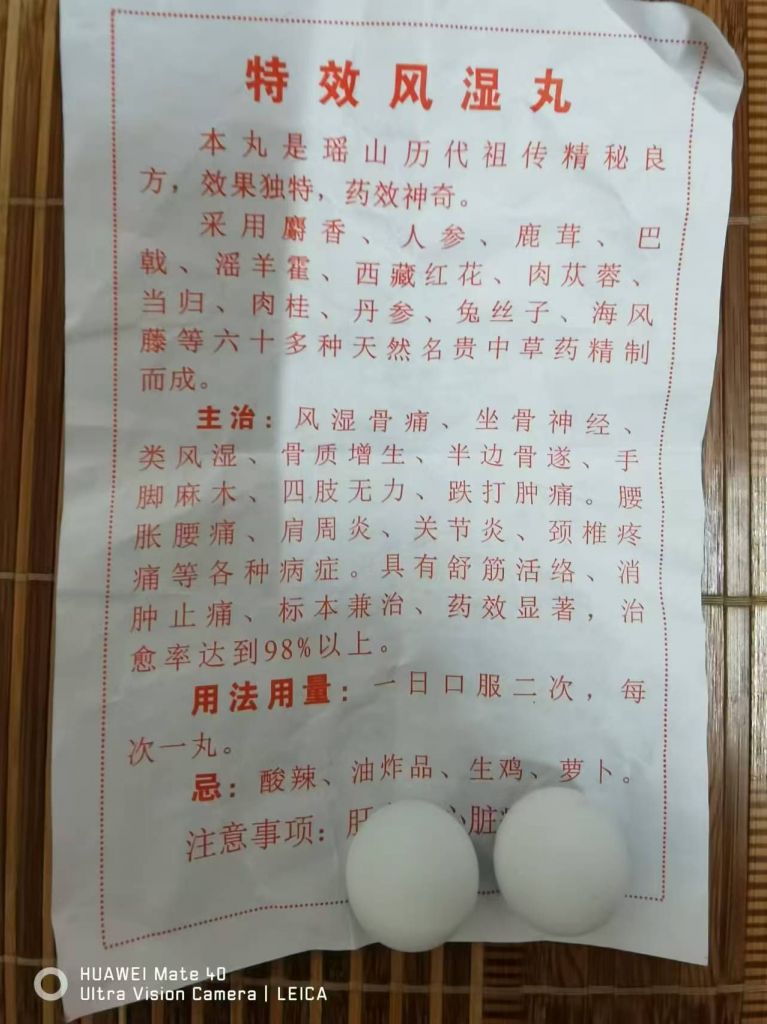 特效风湿丸
本丸是瑶山历代祖传精秘良
方，效果独特，药效神奇。
采用麝香、人参、鹿茸、巴
戟、滛羊霍、西藏红花、肉苁蓉、
当归、肉桂、丹参、兔丝子、海风
藤等六十多种天然名贵中草药精制
而成。
主治：风湿骨痛、坐骨神经、
类风湿、骨质增生、半边骨遂、手
脚麻木、四肢无力、跌打肿痛。腰
胀腰痛、肩周炎、关节炎、颈椎疼
痛等各种病症。具有舒筋活络、消
肿止痛、标本兼治、药效显著，治
愈率达到98%以上。
用法用量：一日口服二次，每
次一丸。
忌：酸辣、油炸品、生鸡、萝卜。
注意事项：肝 心脏
HUAWEI Mate 40
Ultra Vision Camera | LEICA